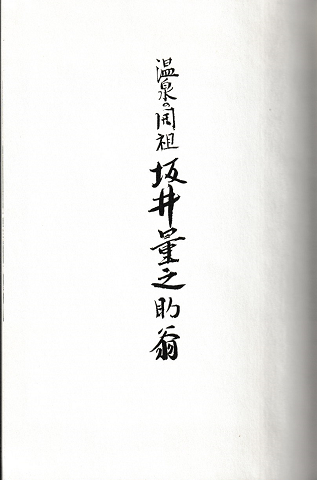 温泉の開祖 坂井量之助翁